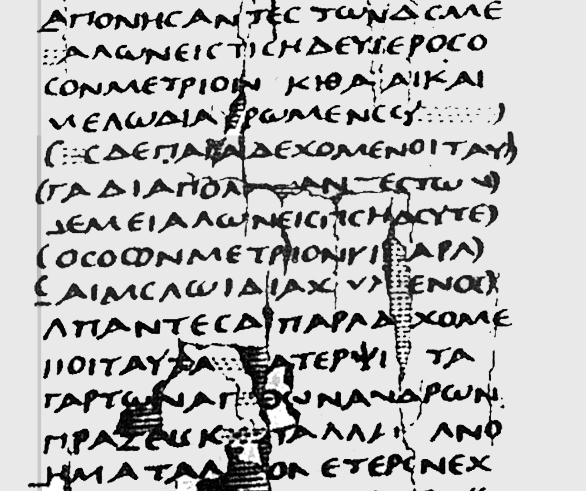 ΑΠΟΝΗϹΑΝΤΕϹ ΤΩΝΔϹΜΕ
ΑΛΩΝΕΙϹΤΙϹΗΔΕΥΤΕΡΟϹΟ
ϹΟΝΜΕΤΡΙΟΙΝ ΚΙΘΑ ΑΙΚΑΙ
ΜΕΛΩΔΙΑ ΕΡΩΜΕΝϹϹΥ )
( ϹΔΕΠΑΡΑΔΕΧΟΜΕΝΟΙΤΑΥ)
(ΓΑΔΙΑΠΟΛ ΑΝ ΤΕϹΤΩΝ)
ΔΕΜΕΙΑΛΩΝΕΙϹΠϹΗΔϹΥΤΕ)
(ΟϹΟϹΟΝΜΕΤΡΙΟΝΨΙ ΑΡΑ)
ϹΑΙΜϹΛΩΙΔΙΑΧ ΕΝΟΙ)
ΑΠΑΝΤΕϹΔ ΠΑΡΑΔ ΧΟΜΕ
ΙΙΟΙΤΑΥΤΑ ΑΤΕΡΨΙ ΤΑ
ΓΑΡΤΩΝΑΓ ΘΩΝΑΝΔΡΩΝ
ΠΡΑΞΕΙϹ Κ ΤΑΛΛΑ ΑΝΟ
ΗΜΑΤΑΛ ΟΝ ΕΤΕΡϹΝΕΧ